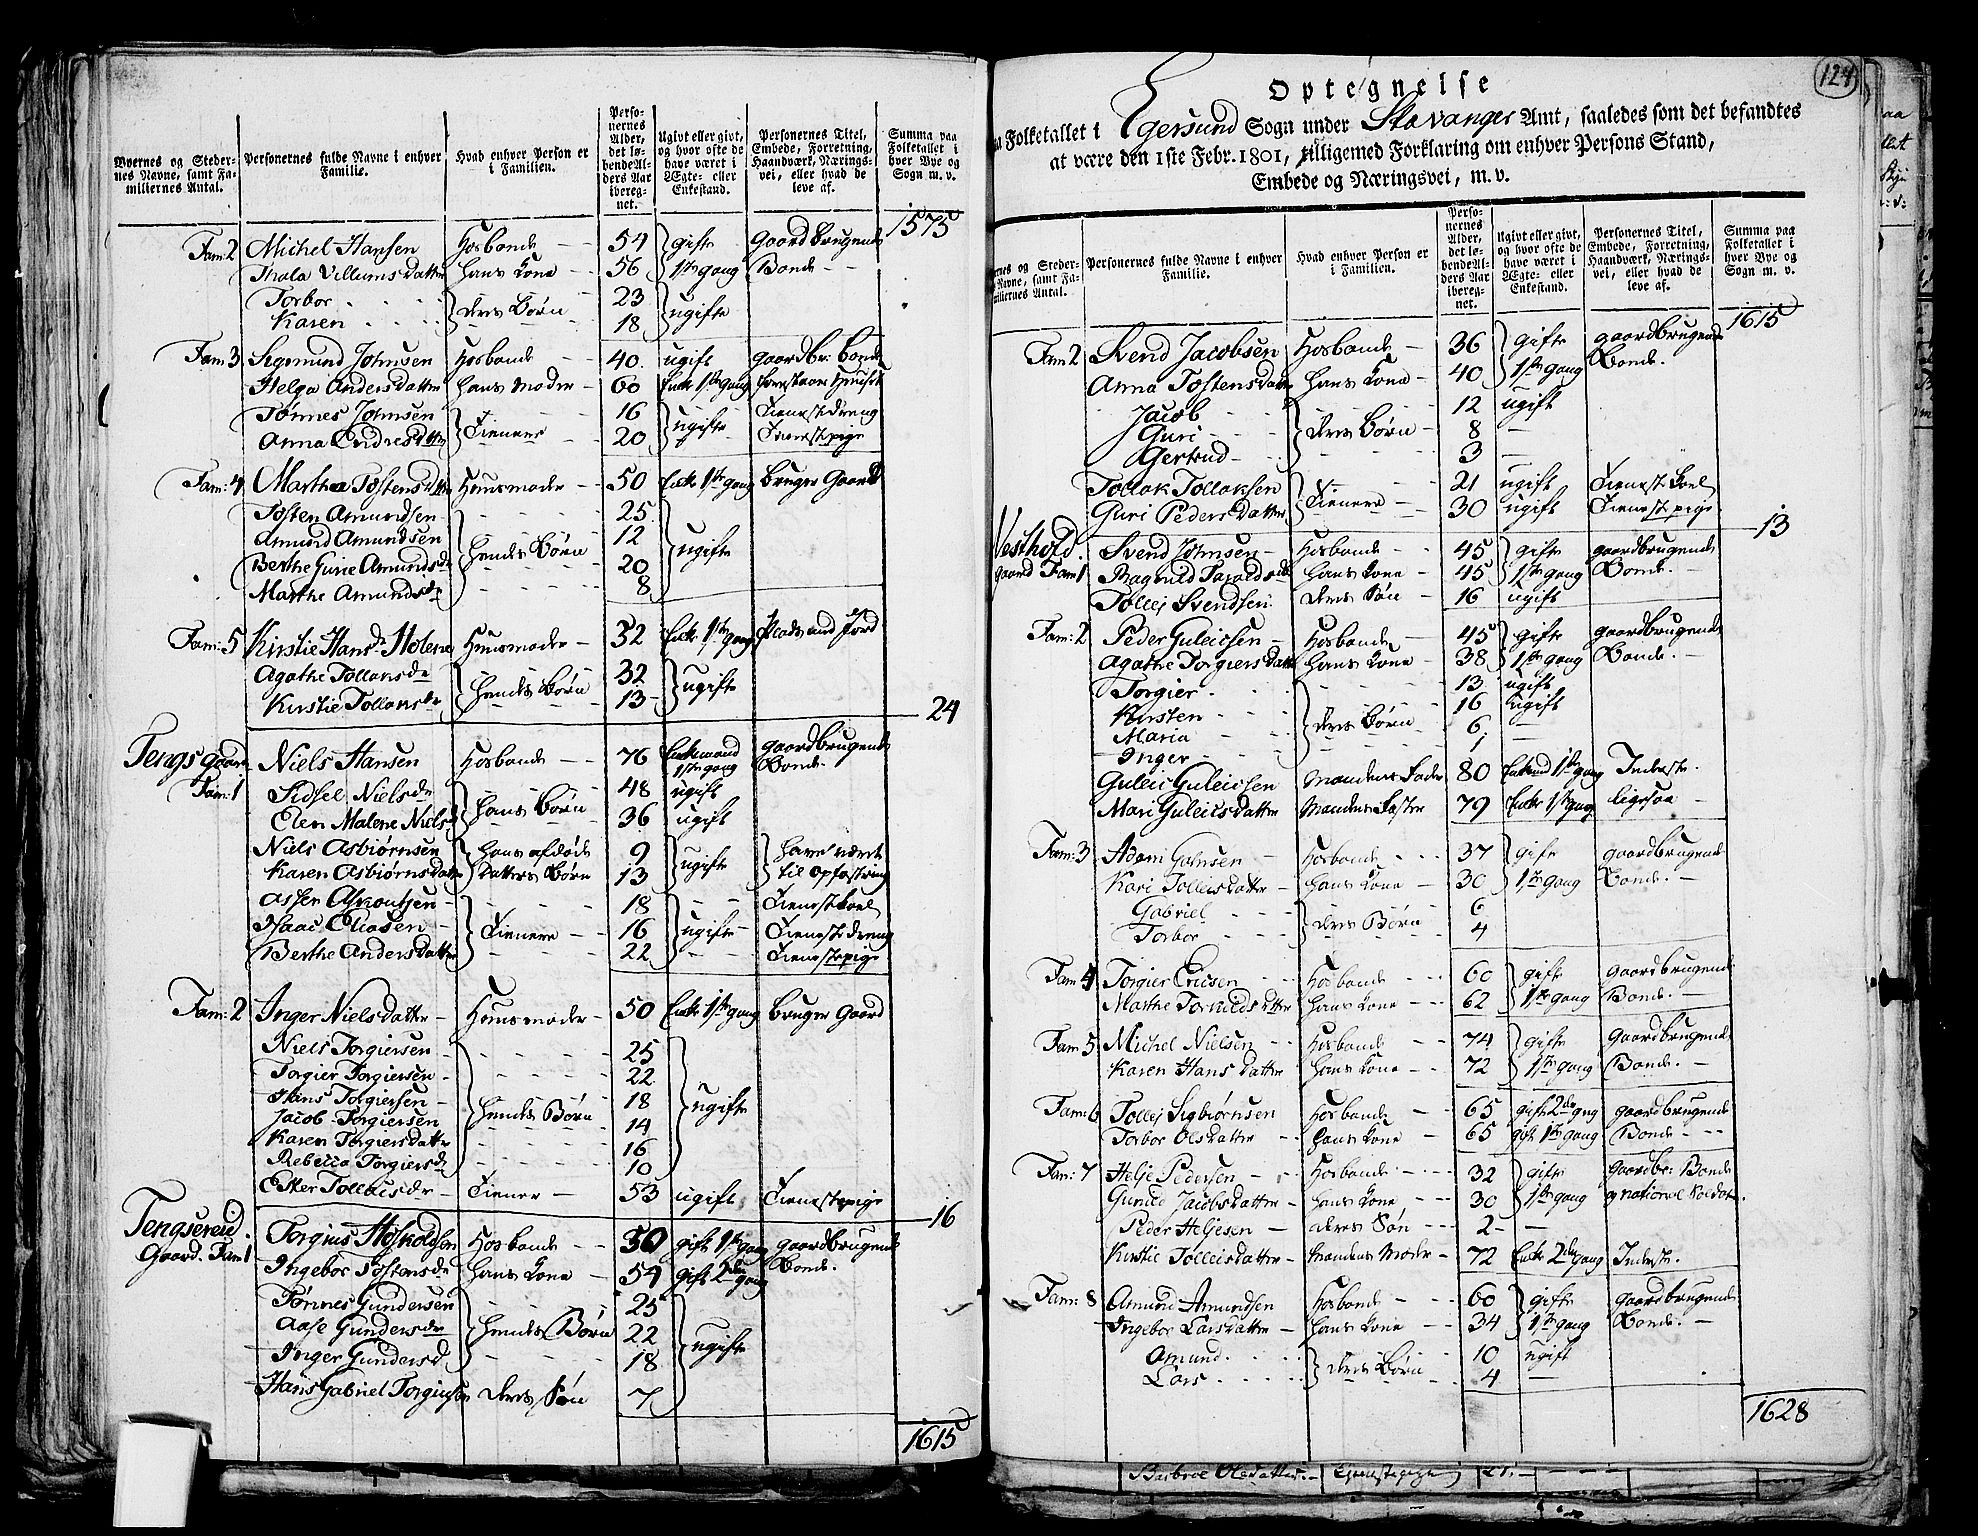 Byernes og Stedernes Navne, samt Familiernes Antal.
Personernes fulde Navne i enhver Familie.
Hvad enhver Person er i Familien.
Personernes Alder, det løbende Alders Aar iberegnet.
Ugivt eller givt, og hvor ofte de have været i Ægte- eller Enkestand.
Personernes Titel, Embede, Forretning, Haandværk, Næringsvei, eller hvad de leve af.
Summa paa Folketallet i hver Bye og Sogn m. v.
1575
Fam: 2 Michel Hansen Hosbonde 54 gifte Gaardbrugende
Thala Villumsdatter hans Kone 56 1ste gang Bonde
Torbor 23
Karen deres Børn 18 ugifte
Fam: 3 Sigmund Johnsen Hosbonde 40 ugift gaardbr: Bonde
Helga Andersdatter hans Moder 60 Enke 1ste gang
Tønnes Johnsen 16 Tienestedreng
Anna Endresdttr Tienere 20 ugifte Tienestepige
Fam: 4 Martha Tostensdttr Huusmoder 50 Enke 1ste gang bruger Gaard
Tosten Amundsen 25
Amund Amundsen 12
Berthe Gurie Amundsdr hendes Børn 20 ugifte
Marthe Amundsdr 8
Fam: 5 Kirstie Hansdr Holene Huusmoder 32 Enke 1ste gang Plads uden Jord
Agathe Tollansdr 32
Kirstie Tollansdr hendes Børn 13 ugifte
24
Tengs gaard Niels Hansen Hosbonde 76 Enkemand 1ste gang gaardbrugende Bonde
Fam: 1 Sidsel Nielsdr 48 ugift
Elen Malene Nielsdr hans Børn 36 ugift
Niels Asbiørnsen hans afdøde 9
Karen Asbiørnsdatter Datters Børn 13 ugifte til opfostring
Assen 18 Tienestekarl
Isaac Eliasen Tienere 16 ugifte Tienestedreng
Berthe Andersdatter 22 Tienestepige
Fam: 2 Inger Nielsdatter Huusmoder 50 Enke 1ste gang bruger Gaard
Niels Torgiersen 25
Torgier Torgiersen 22
Hans Torgiersen 18
Jacob Torgiersen hendes Børn 14 ugifte
Karen Torgiersdatter 16
Rebecca Torgiersdr 10
Ester Tolleisdr Tiener 53 ugift Tienestepige
16
Tengsereid Torgius Hoskoldsen Hosbonde 50 gift 1ste gang gaardbrugende
Gaard. Fam: 1 Ingebor Tostensdr hans Kone 54 gift 2den gang Bonde.
Tønnes Gundersen 25
Aase Gundersdr hendes Børn 22 ugifte
Inger Gundersd 18
Hans Gabriel Torgiusen deres Søn 7
1615
124
Optegnelse
paa Folketallet i Egersund Sogn under Stavanger Amt, saaledes som det befandtes
at være den 1ste Febr. 1801, tilligemed Forklaring om enhver Persons Stand,
Embede og Næringsvei, m. v.
Personernes fulde Navne i enhver Familie.
Hvad enhver Person er i Familien.
Personernes Alder, det løbende Alders Aar iberegnet.
Ugivt eller givt, og hvor ofte de have været i Ægte- eller Enkestand.
Personernes Titel, Embede, Forretning, Haandværk, Næringsvei, eller hvad de leve af.
Summa paa Folketallet i hver Bye og Sogn m. v.
1615
Fam: 2 Svend Jacobsen Hosbonde 36 gifte gaardbrugende
Anna Tostensdatter hans Kone 40 1ste gang Bonde.
Jacob 12 ugift
Guri deres Børn 8 —
Gertrud 3 —
Tollak Tollaksen 21 ugift Tienestekarl
Guri Pedersdatter Tienere 30 ugift Tienestepige
13
Vesthold. Svend Johnsen Hosbonde 45 gifte gaardbrugende
gaard Fam: 1 Ragnild hans Kone 45 1ste gang Bonde.
Tollej Svendsen deres Søn 16 ugift
Fam: 2 Peder Guleicsen Hosbonde 45 gifte gaardbrugende
Agathe Torgiersdatter hans Kone 38 1ste gang Bonde.
Torgier 13 ugift
Kirsten 16 ugift
Maria deres Børn 6 —
Inger 1
Guleic Guleicsen Mandens Fader 80 Enkemd 1ste gang Inderste.
Mari Guleicsdatter Mandens Faster 79 Enke 1ste gang ligesaa
Fam: 3 Adam Hosbonde 37 gifte gaardbrugende
Kari Tolleisdatter hans Kone 30 1ste gang Bonde.
Gabriel 6
Torbor deres Børn 4
Fam: 4 Torgier Ericsen Hosbonde 60 gifte gaardbrugende
Marthe hans Kone 62 1ste gang Bonde.
Fam: 5 Michel Nielsen Hosbonde 74 gifte gaardbrugende
Karen Hansdatter hans Kone 72 1ste gang Bonde.
Fam: 6 Tollej Sigbiørnsen Hosbonde 65 gift 2den gang gaardbrugende
Torbor Olsdatter hans Kone 65 gift 1ste gang Bonde
Fam: 7 Helje Pedersen Hosbonde 32 gifte Gaardbr: Bonde
Gunild Jacobsdatter hans Kone 30 1ste gang og national Soldat.
Peder Heljesen deres Søn 2 —
Kirstie Tolleisdatter Mandens Moder 72 Enke 2den gang Inderste.
Fam: 8 Amund Amundsen Hosbonde 60 gifte gaardbrugende
Ingebor Larsdatter hans Kone 34 1ste gang Bonde.
Amund 10 ugift
Lars deres Børn 4 —
1628
Olsdatter Tienestepige